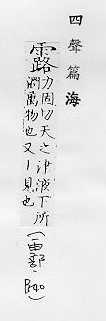 四聲篇海
露
力固切天之津液下所
潤萬物也又丨見也
(雨部